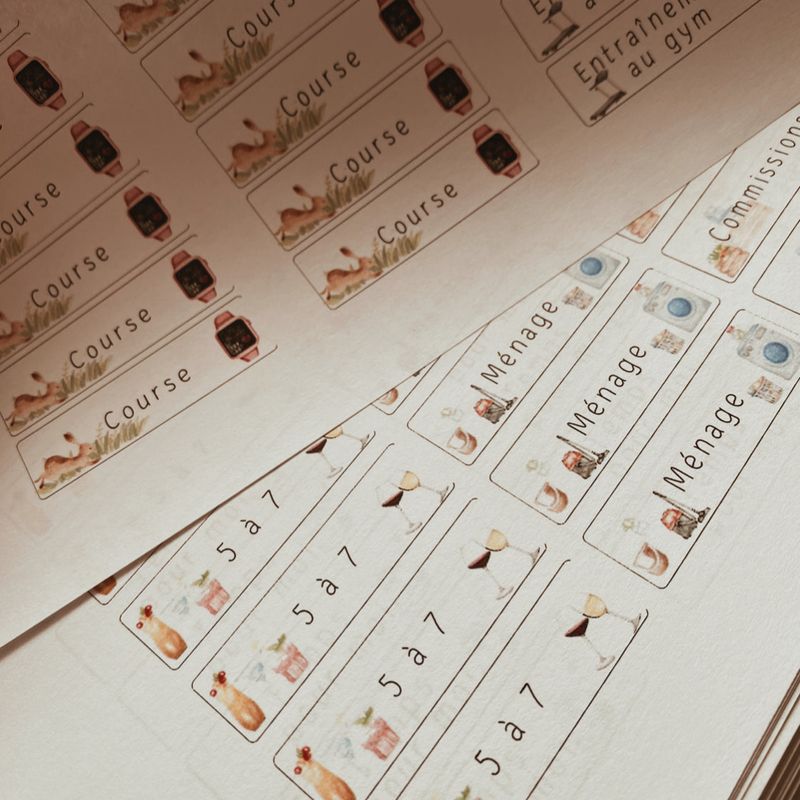 Course
Course
Course
Course
Course
Course
Course
Course
Course
Entraînement
au gym
Commissions
Ménage
Ménage
Ménage
5 à 7
5 à 7
5 à 7
5 à 7